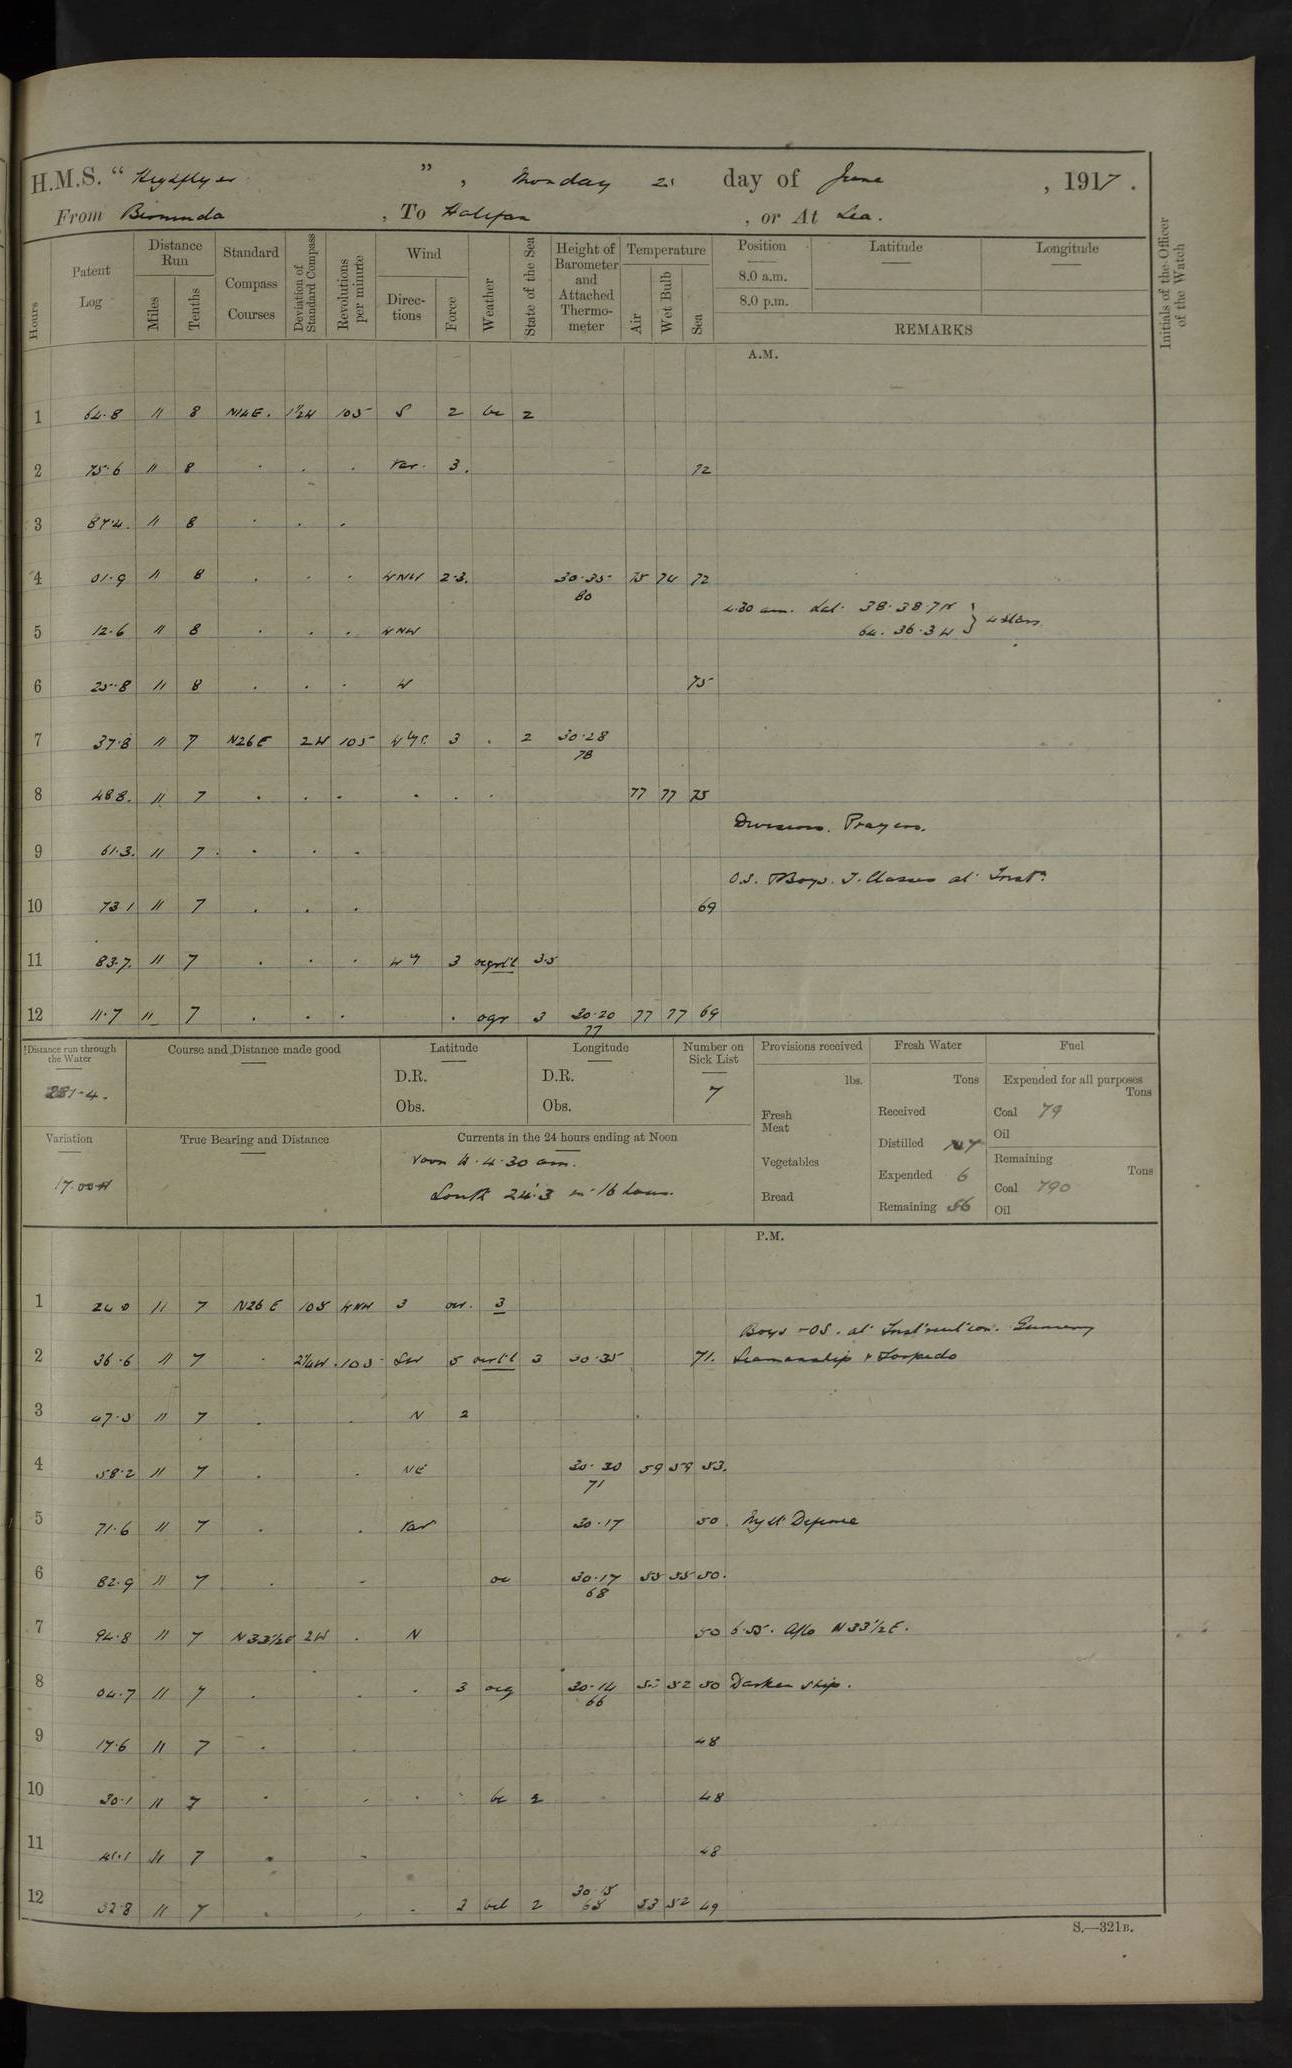 H.M.S. " Highflyer " , Monday day of June , 1917 .
From Bermuda , To Halifax , or At Sea.
Hours
Patent Log
Distance Run
Miles
Tenths
Standard Compass Courses
Deviation of Standard Compass
Revolutions per minute
Wind
Directions
Force
Weather
State of the Sea
Height of Barometer and Attached Thermometer
Temperature
Air
Wet Bulb
Sea
Position
8.0 a.m.
8.0 p.m.
Latitude
Longitude
REMARKS
Initials of the Officer of the Watch
A.M.
1 64.8 11 8 N14E. 1½W 105 S 2 bc 2
2 75.6 11 8 . . . Var. 3. 72
3 87.4. 11 8 . . .
4 01.9 11 8 . . . WNW 2.3. 30.35 75 74 72
80
4.30 am. Lat. 38.38.7N } 4 stars
5 12.6 11 8 . . . WNW 64.36.3W
6 25.8 11 8 . . . W 75
7 37.8 11 7 N26E 2W 105 3 . 2 30.28
78
8 48.8. 11 7 . . . . . . 77 77 75
Divisions. Prayers.
9 61.3. 11 7 . . . .
O.S. Boys. T. Classes at Instn.
10 73.1 11 7 . . . 69
11 83.7. 11 7 . . . 3 3.5
12 11.7 11 7 . . . . ogr 3 30.20 77 77 69
77
Distance run through the Water
281.4.
Course and Distance made good
Latitude
D.R.
Obs.
Longitude
D.R.
Obs.
Number on Sick List
7
Provisions received
lbs.
Fresh Meat
Vegetables
Bread
Fresh Water
Tons
Received
Distilled
Expended 6
Remaining 56
Fuel
Expended for all purposes
Tons
Coal 79
Oil
Remaining
Tons
Coal 790
Oil
Variation
17.00W
True Bearing and Distance
Currents in the 24 hours ending at Noon
Noon to 4.30 am.
South 24.3 in 16 hours.
P.M.
1 24.0 11 7 N26E 105 WNW 3 3
Boys - OS. at Instruction. Gunnery
2 36.6 11 7 . 2¼W . 105 SW 5 3 30.35 71. Seamanship & Torpedo
3 47.5 11 7 . . N 2
4 58.2 11 7 . . NE 30.30 59 59 53.
71
5 71.6 11 7 . . Var 30.17 50. Night Defence
6 82.9 11 7 . . oc 30.17 55 55 50.
68
7 94.8 11 7 N33½E 2W . N 50 6.55. A/Co N33½E.
8 04.7 11 7 . . . 3 ocg 30.14 52 50 Darken ship.
66
9 17.6 11 7 . . 48
10 30.1 11 7 . . . . bc 2 48
11 41.1 11 7 . . 48
12 52.8 11 7 . . . 2 2 30.15 53 52 49
65
S.—321B.